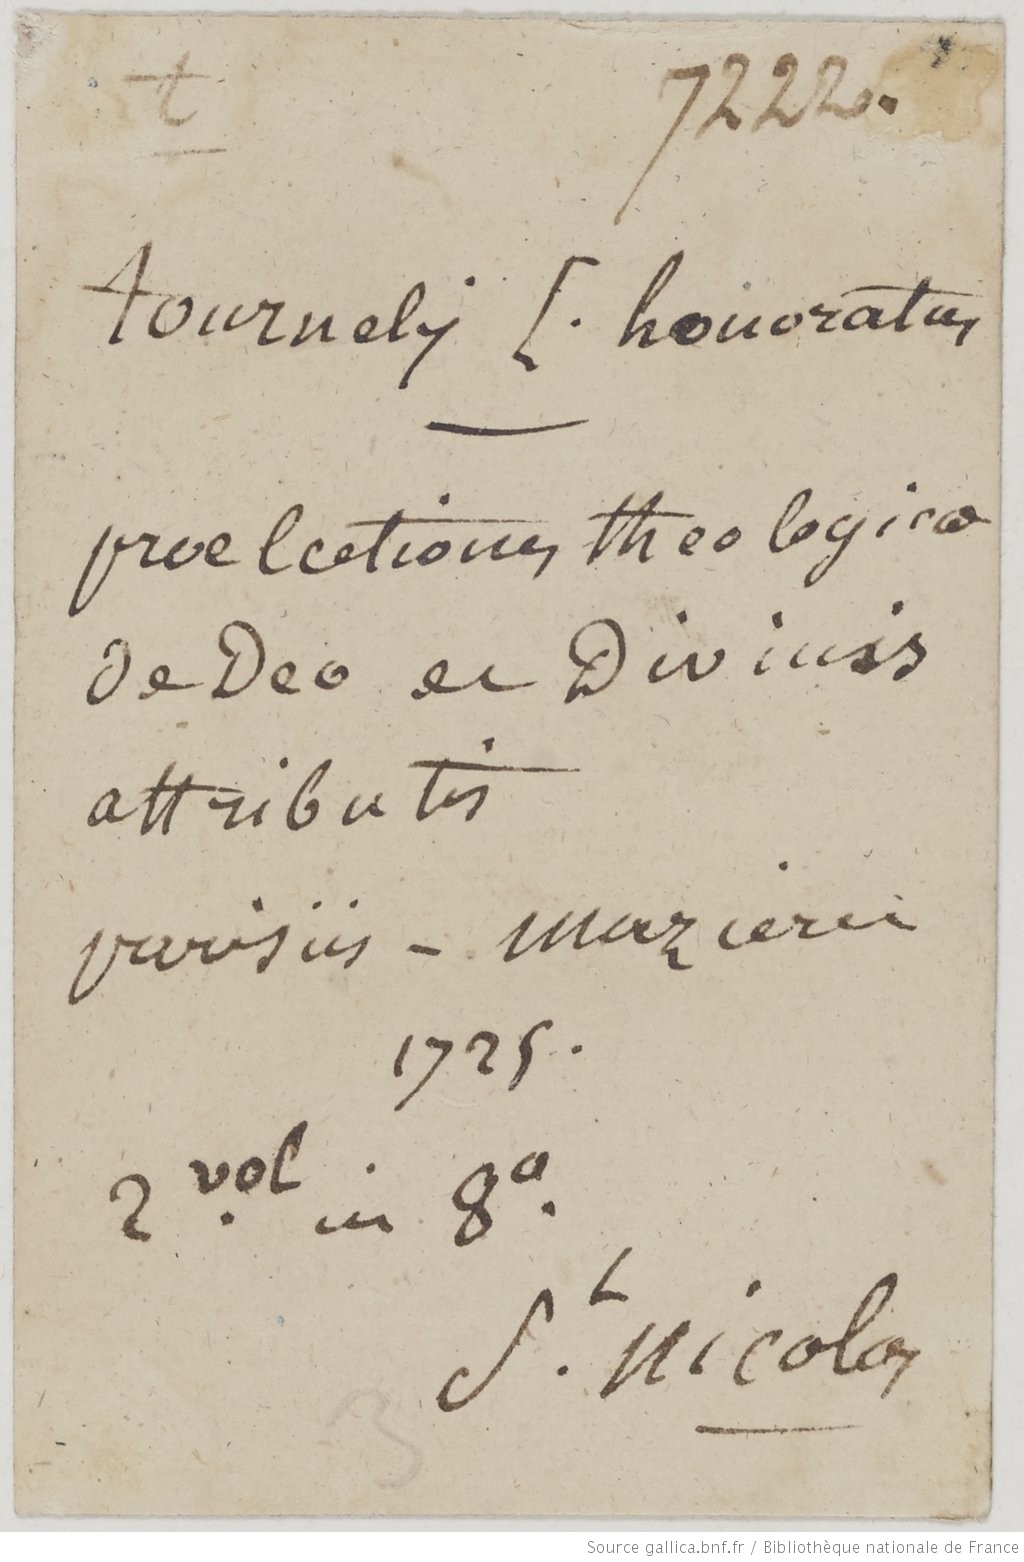 t 7222.
tournely [. honoratus
proelectiones theologicœ
de Deo et Divinis
attributis
parisiis - mazieres
1725.
2 vol. in 8o.
St. nicolas
Source gallica.bnf.fr / Bibliothèque nationale de France